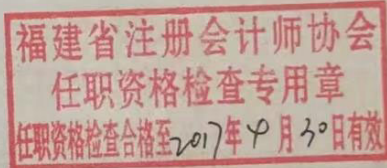 福建省注册会计师协会
任职资格检查专用章
任职资格检查合格至2017年4月30日有效